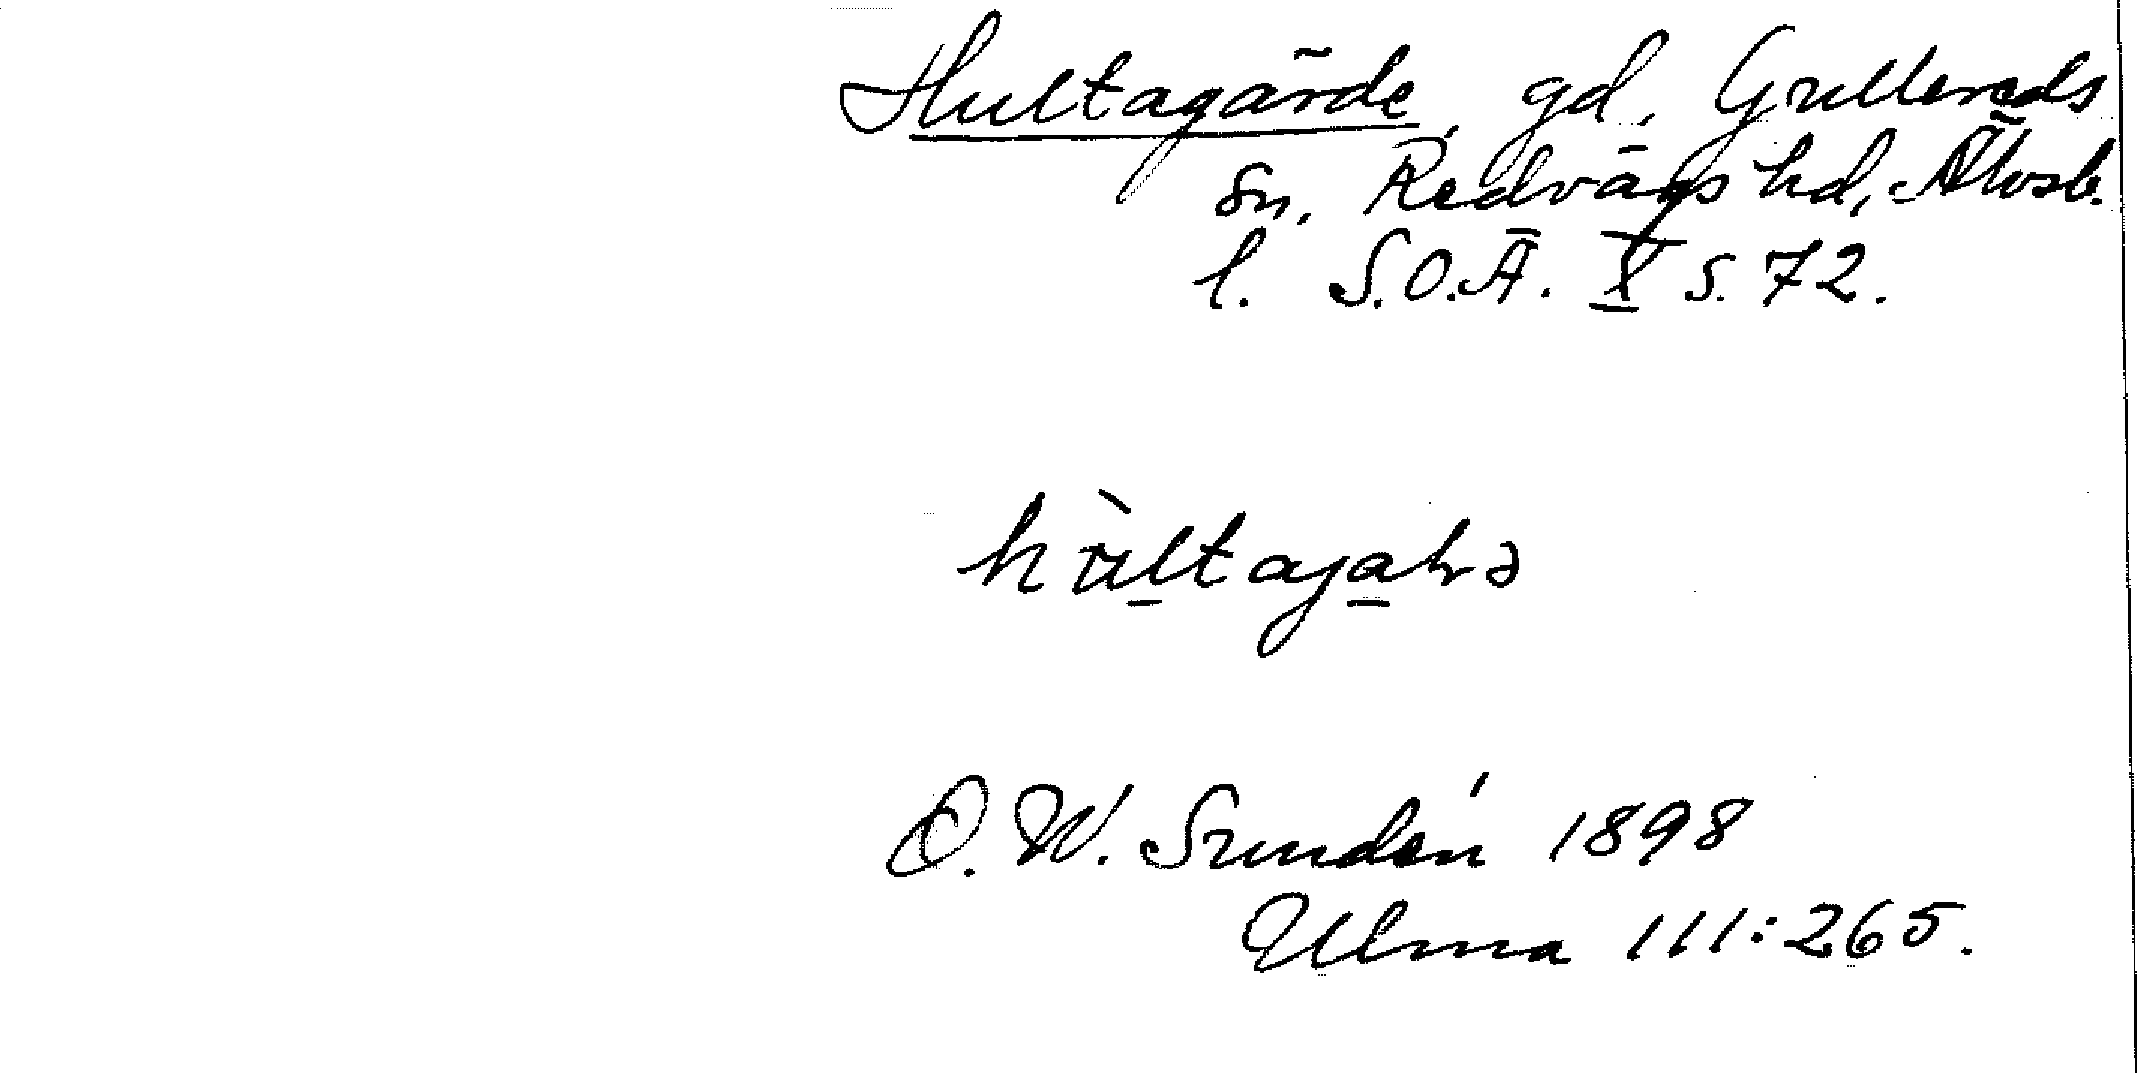 Hultagärde, gd, Grullereds
sn, Redvägs hd, Älvsb.
l. S.O.Ä. X s. 72.
D. W. Sundén 1898
Ulma 111:265.